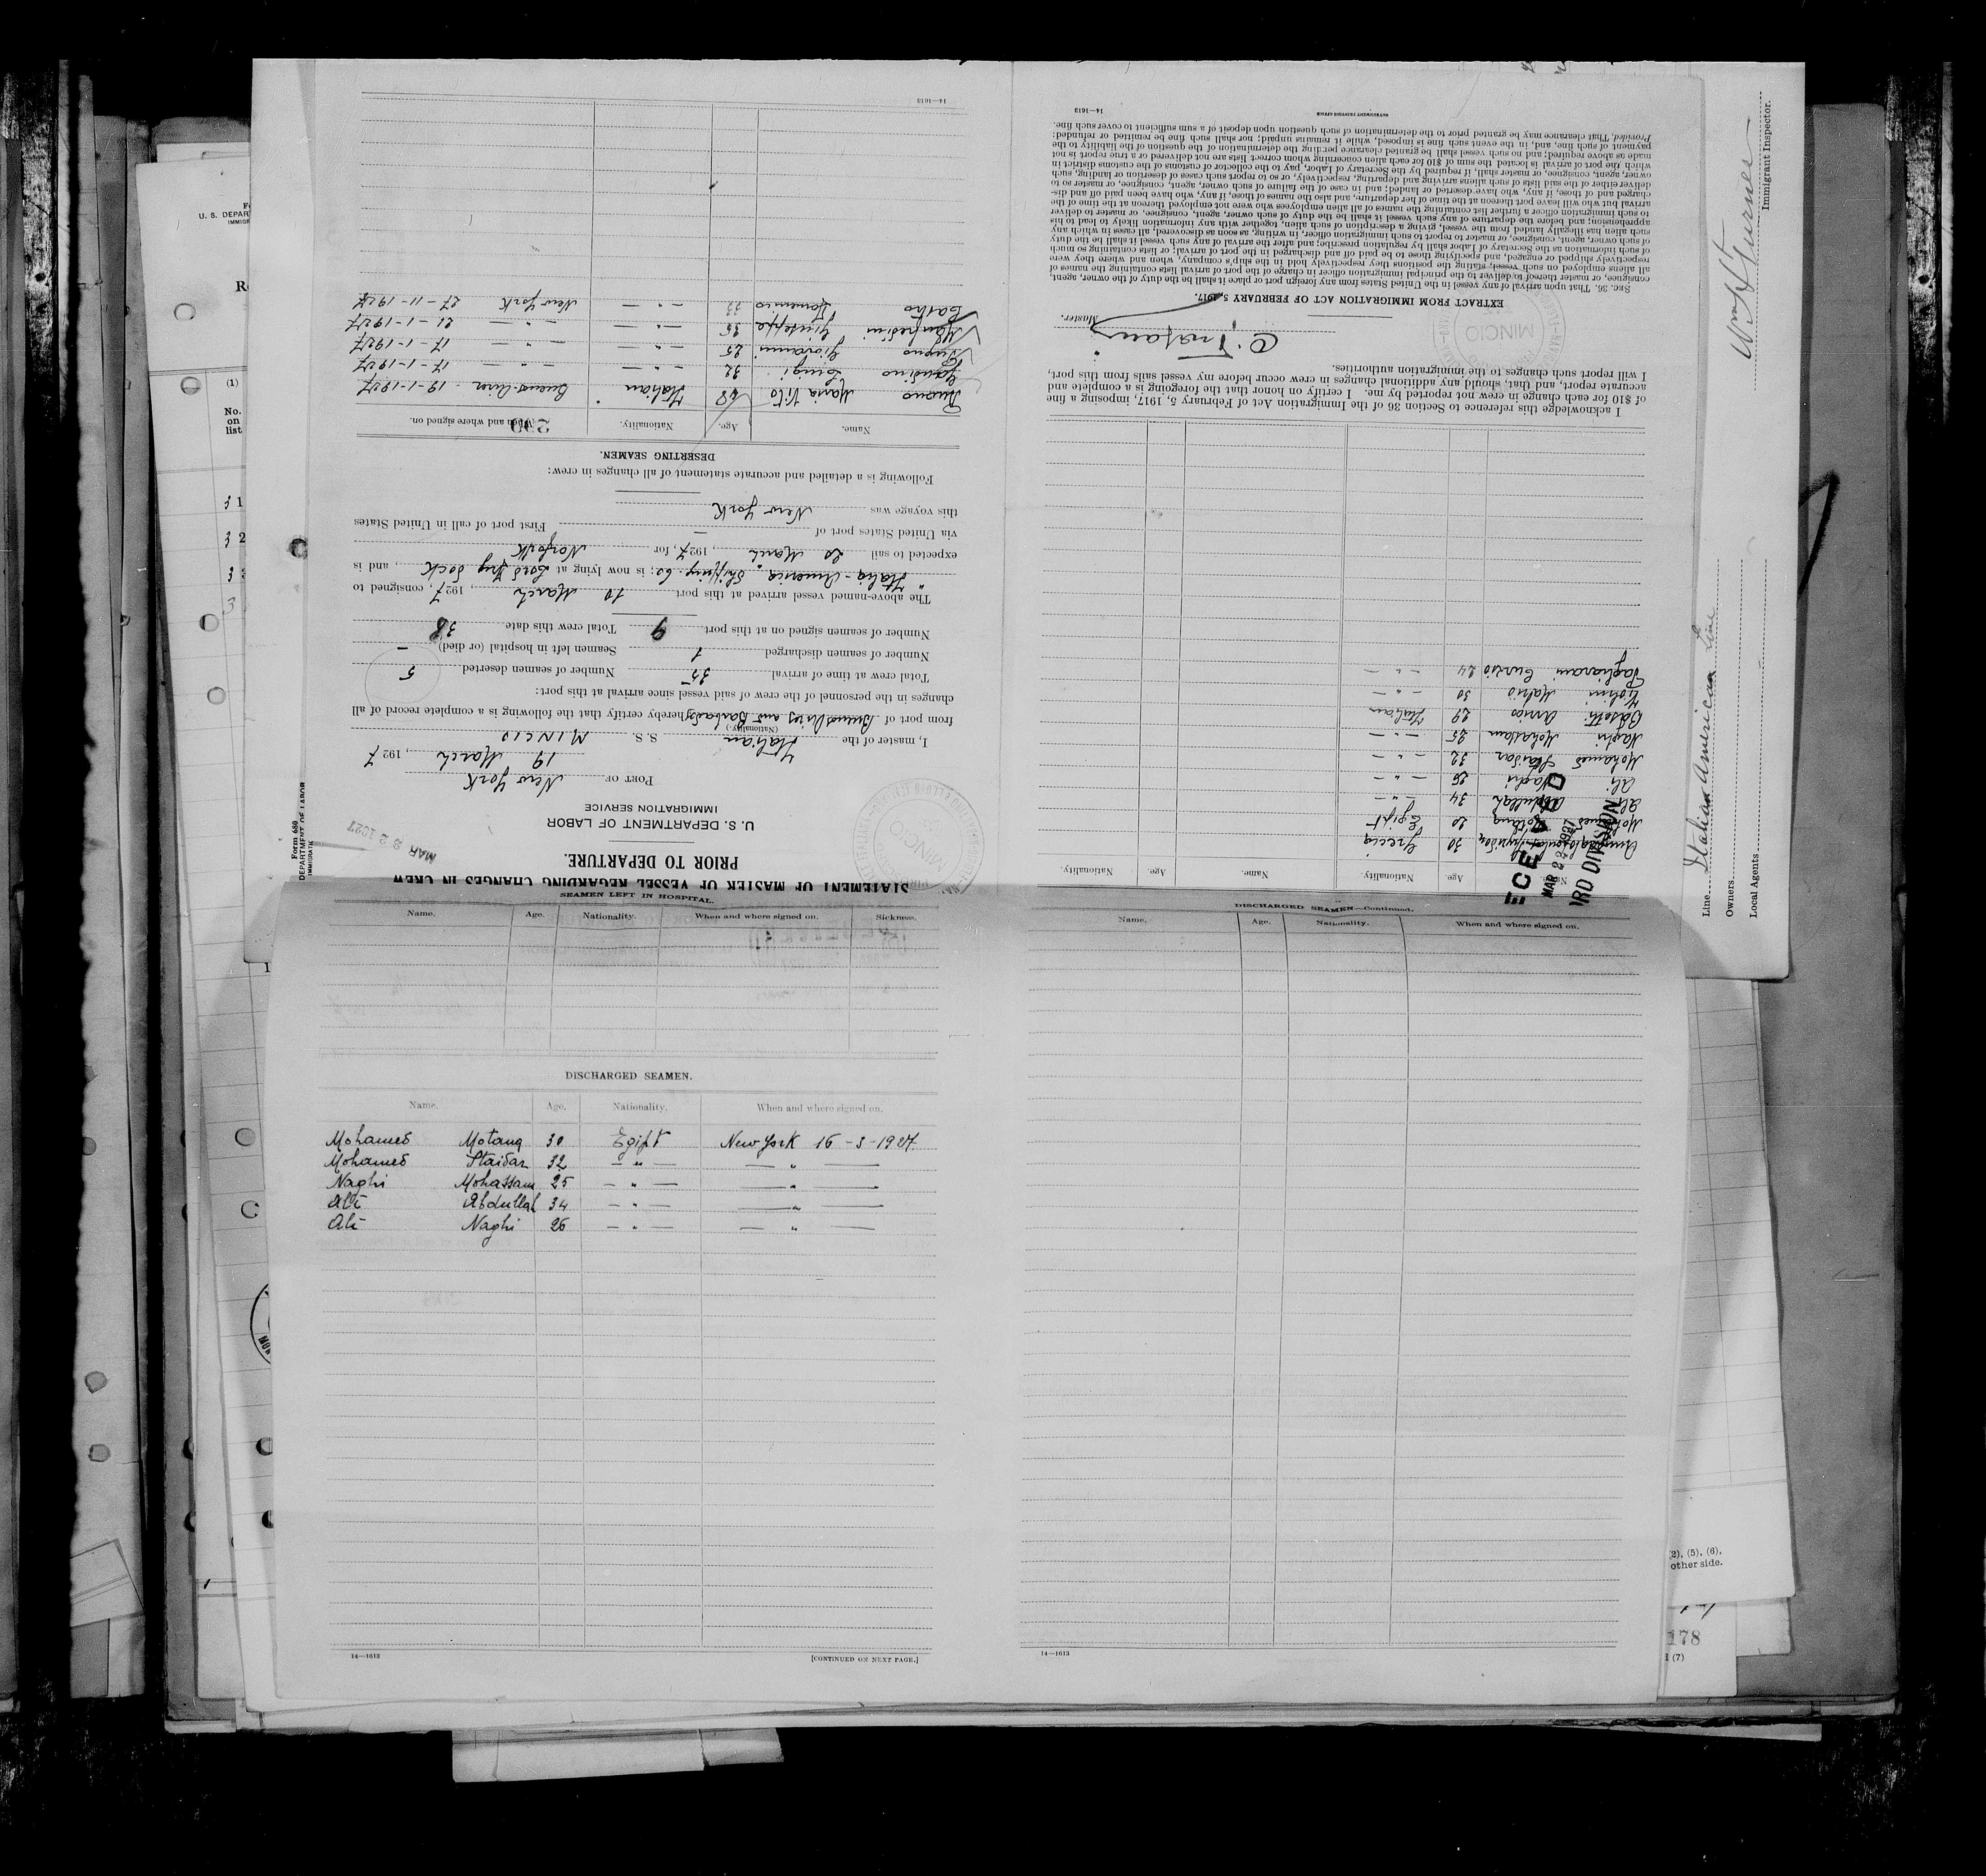 Form 680
U. S. DEPARTMENT OF LABOR
IMMIGRATION SERVICE
MAR 22 1927
STATEMENT OF MASTER OF VESSEL REGARDING CHANGES IN CREW
PRIOR TO DEPARTURE.
U. S. DEPARTMENT OF LABOR
IMMIGRATION SERVICE
PORT OF New York
19 March, 1927
I, master of the Italian S. S. MINCIO
(Nationality.)
from port of Buenos Aires and Barbados hereby certify that the following is a complete record of all
changes in the personnel of the crew of said vessel since arrival at this port:
Total crew at time of arrival 35 Number of seamen deserted 5
Number of seamen discharged 1 Seamen left in hospital (or died) –
Number of seamen signed on at this port 9 Total crew this date 38
The above-named vessel arrived at this port 10 March, 1927, consigned to
"Italia-America" Shipping Co; is now lying at Dry Dock, and is
expected to sail 20 March, 1927, for Norfolk
via United States port of – First port of call in United States
this voyage was New York
Following is a detailed and accurate statement of all changes in crew:
DESERTING SEAMEN.
Name. Age. Nationality. When and where signed on.
290
Maria Vito 48 Italian Buenos-Aires 19-1-1927
Luigi 32 – " – – " – 17-1-1927
Giovanni 25 – " – – " – 17-1-1927
Manfredini Giuseppe 36 – " – – " – 21-1-1927
Domenico 33 – " – New York 27-11-1927
14—1613
SEAMEN LEFT IN HOSPITAL.
Name. Age. Nationality. When and where signed on. Sickness.
DISCHARGED SEAMEN.
Name. Age. Nationality. When and where signed on.
Mohamed Motana 30 Egipt New York 16-3-1927
Mohamed Staidar 32 – " – – " –
Naghi Mohassam 25 – " – – " –
Ali Abdullah 34 – " – – " –
Ali Naghi 26 – " – – " –
14—1613 [CONTINUED ON NEXT PAGE.]
DISCHARGED SEAMEN—Continued.
Name. Age. Nationality. When and where signed on.
14—1613
Name. Age. Nationality. Name. Age. Nationality.
30 Grecia
Mohamed Motana 20 Egipt
Ali Abdullah 34 – " –
Ali Naghi 26 – " –
Mohamed Staidar 32 – " –
Naghi Mohassam 25 – " –
Basetti Arrigo 29 Italian
Mario 30 – " –
Pagliarani Curzio 24 – " –
RECEIVED
MAR 22 1927
RECORD DIVISION
I acknowledge this reference to Section 36 of the Immigration Act of February 5, 1917, imposing a fine
of $10 for each change in crew not reported by me. I certify on honor that the foregoing is a complete and
accurate report, and that, should any additional changes in crew occur before my vessel sails from this port,
I will report such changes to the immigration authorities.
Master.
MINCIO
EXTRACT FROM IMMIGRATION ACT OF FEBRUARY 5, 1917.
SEC. 36. That upon arrival of any vessel in the United States from any foreign port or place it shall be the duty of the owner, agent,
consignee, or master thereof to deliver to the principal immigration officer in charge of the port of arrival lists containing the names of
all aliens employed on such vessel, stating the positions they respectively hold in the ship's company, when and where they were
respectively shipped or engaged, and specifying those to be paid off and discharged in the port of arrival; or lists containing so much
of such information as the Secretary of Labor shall by regulation prescribe; and after the arrival of any such vessel it shall be the duty
of such owner, agent, consignee, or master to report to such immigration officer, in writing, as soon as discovered, all cases in which any
such alien has illegally landed from the vessel, giving a description of such alien, together with any information likely to lead to his
apprehension; and before the departure of any such vessel it shall be the duty of such owner, agent, consignee, or master to deliver
to such immigration officer a further list containing the names of all alien employees who were not employed thereon at the time of the
arrival but who will leave port thereon at the time of her departure, and also the names of those, if any, who have been paid off and dis-
charged and of those, if any, who have deserted or landed; and in case of the failure of such owner, agent, consignee, or master so to
deliver either of the said lists of such aliens arriving and departing, respectively, or so to report such cases of desertion or landing, such
owner, agent, consignee, or master shall, if required by the Secretary of Labor, pay to the collector of customs of the customs district in
which the port of arrival is located the sum of $10 for each alien concerning whom correct lists are not delivered or a true report is not
made as above required; and no such vessel shall be granted clearance pending the determination of the question of the liability to the
payment of such fine, and, in the event such fine is imposed, while it remains unpaid; nor shall such fine be remitted or refunded:
Provided, That clearance may be granted prior to the determination of such question upon deposit of a sum sufficient to cover such fine.
14—1613 GOVERNMENT PRINTING OFFICE
Line Italian American Line
Owners
Local Agents
Wm H Turner
Immigrant Inspector.
U. S. DEPAR
IMMIG
(1)
No.
on
list
3 1
3 2
3 3
3
(2), (5), (6),
other side.
178